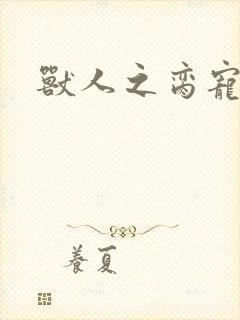 獸人之蛮寵
養夏